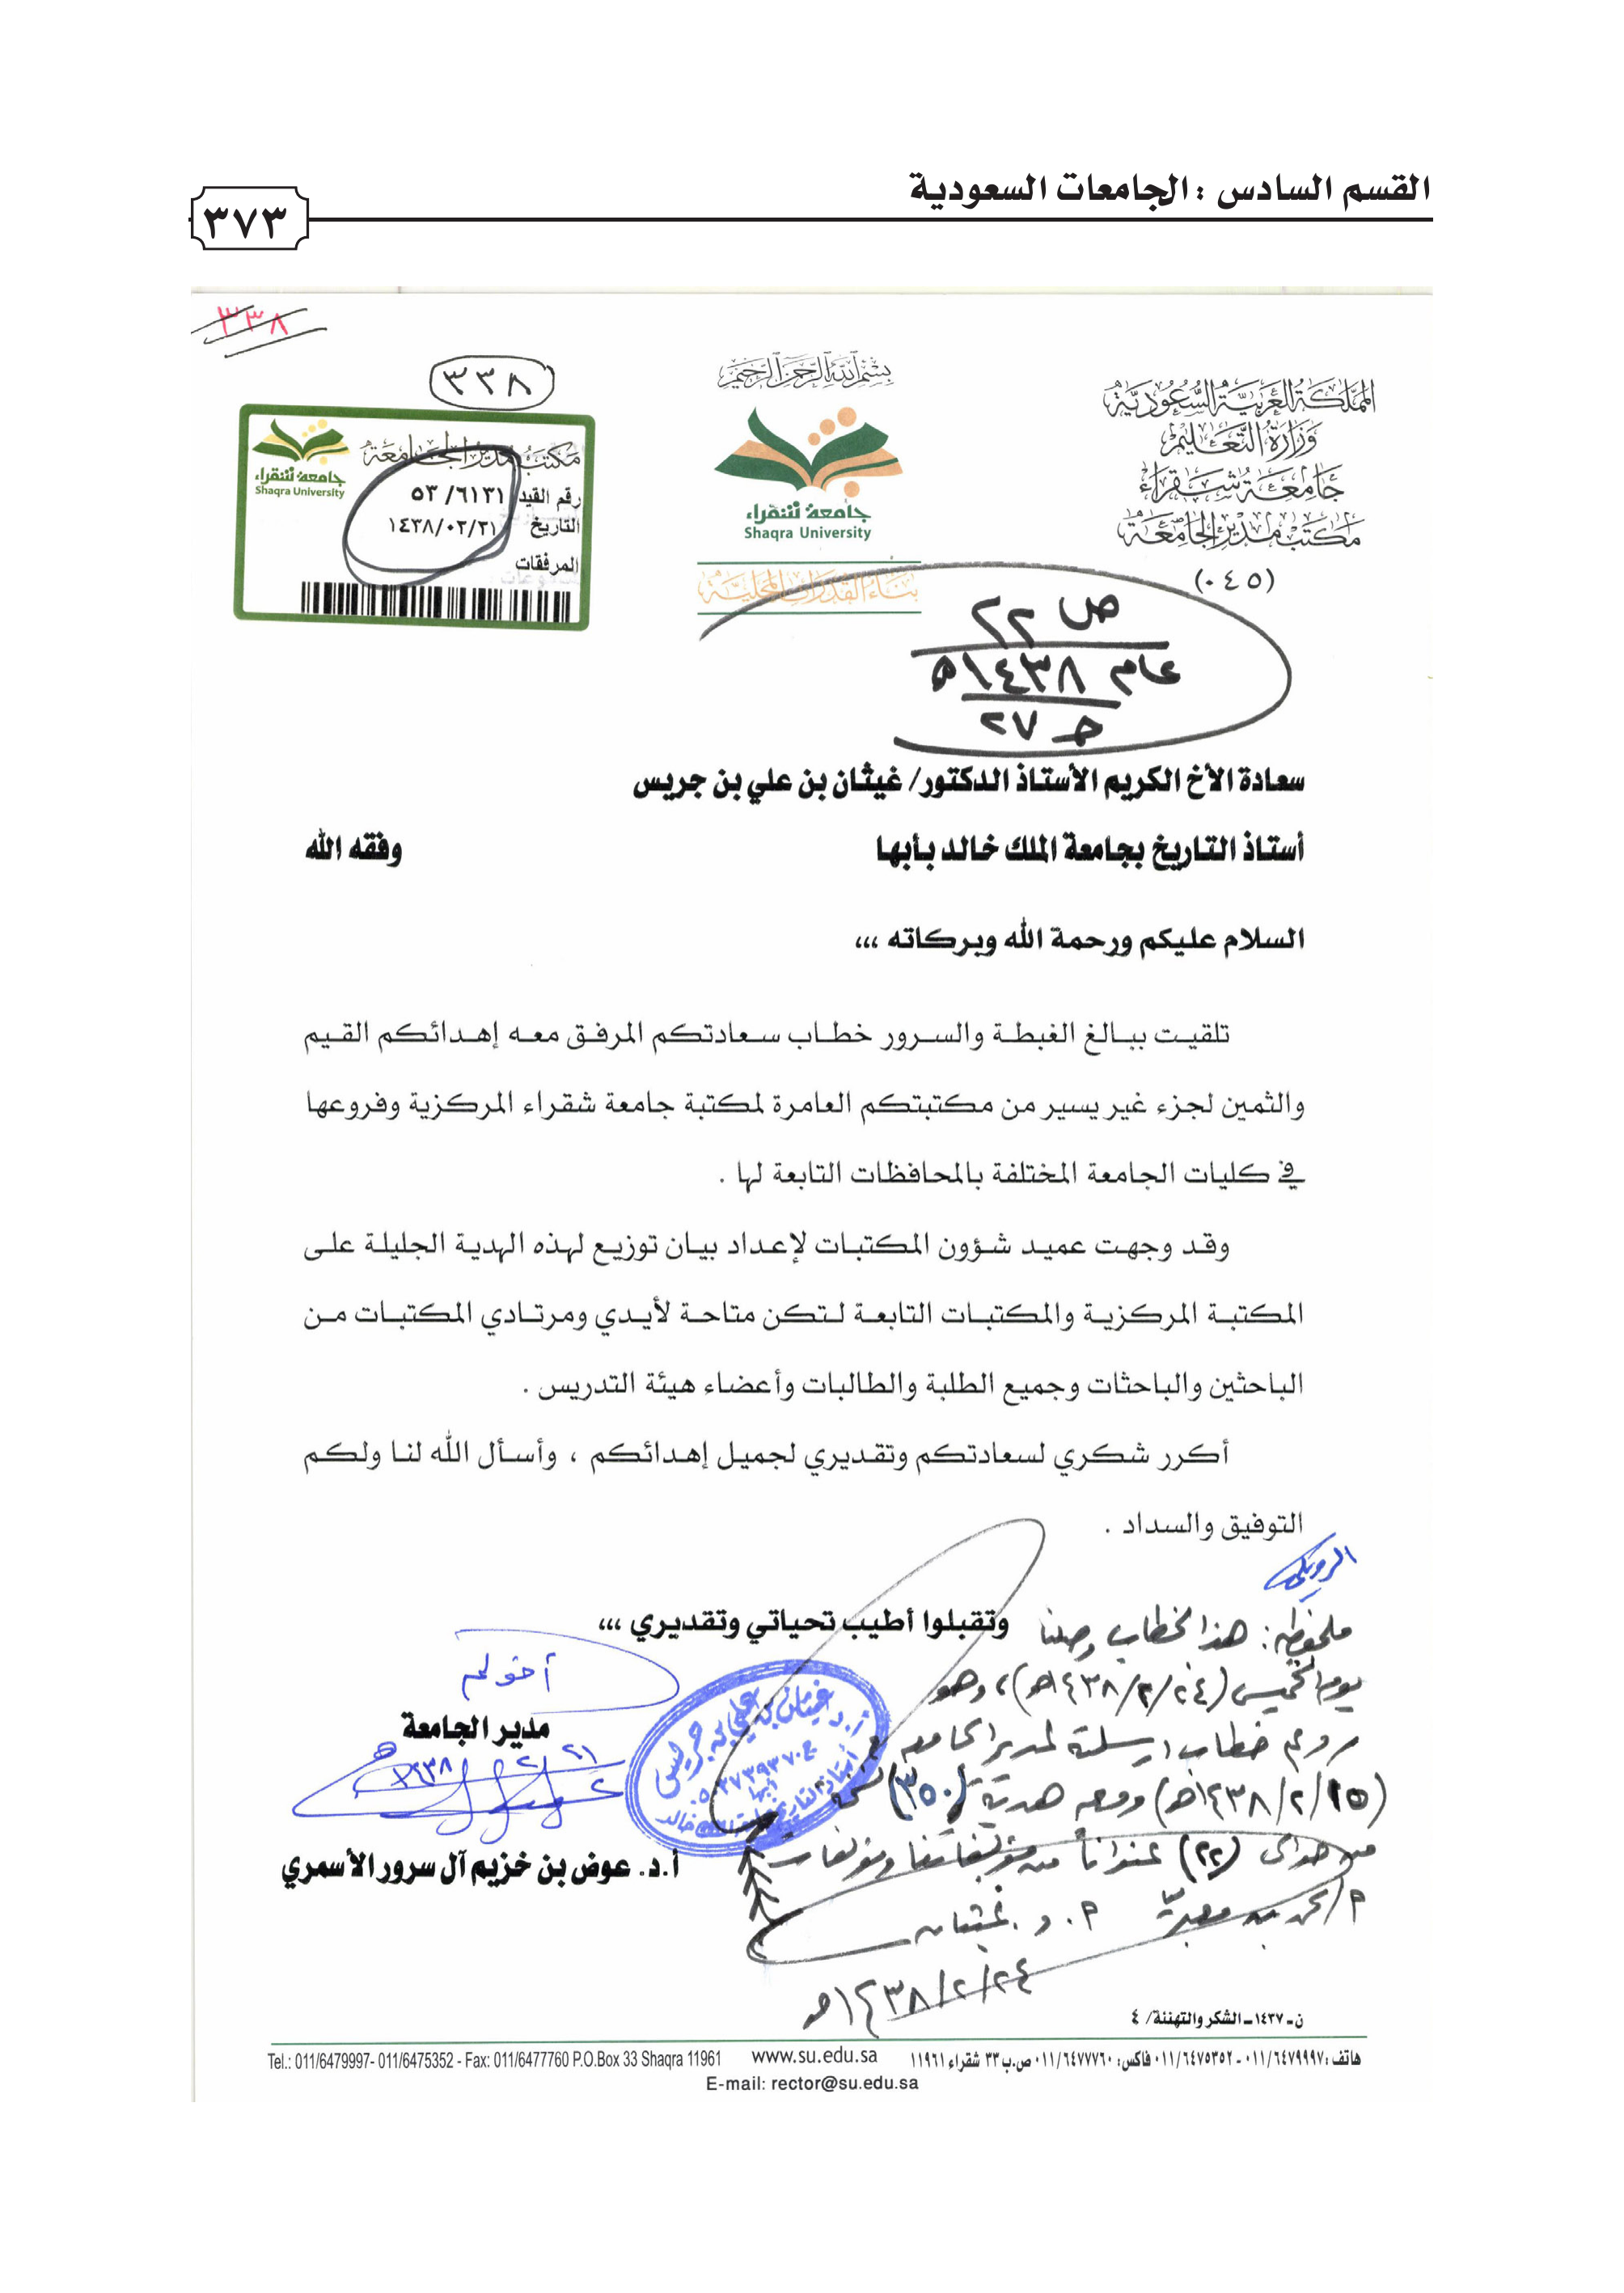 القسم السادس : الجامعات السعودية
٣٧٣
٣٣٨
٣٣٨
بسم الله الرحمن الرحيم
المملكة العربية السعودية
وزارة التعليم
جامعة شقراء
مكتب مدير الجامعة
(٠٤٥)
جامعة شقراء
Shaqra University
بناء القدرات المحلية
مكتب مدير الجامعة
جامعة شقراء
Shaqra University
رقم القيد ٥٣/٦١٣١
التاريخ ١٤٣٨/٠٢/٢١
المرفقات
ص ٢٢
عام ١٤٣٨هـ
حـ ٢٧
سعادة الأخ الكريم الأستاذ الدكتور/ غيثان بن علي بن جريس
أستاذ التاريخ بجامعة الملك خالد بأبها وفقه الله
السلام عليكم ورحمة الله وبركاته ،،،
تلقيت ببالغ الغبطة والسرور خطاب سعادتكم المرفق معه إهدائكم القيم
والثمين لجزء غير يسير من مكتبتكم العامرة لمكتبة جامعة شقراء المركزية وفروعها
في كليات الجامعة المختلفة بالمحافظات التابعة لها .
وقد وجهت عميد شؤون المكتبات لإعداد بيان توزيع لهذه الهدية الجليلة على
المكتبة المركزية والمكتبات التابعة لتكن متاحة لأيدي ومرتادي المكتبات من
الباحثين والباحثات وجميع الطلبة والطالبات وأعضاء هيئة التدريس .
أكرر شكري لسعادتكم وتقديري لجميل إهدائكم ، وأسأل الله لنا ولكم
التوفيق والسداد .
وتقبلوا أطيب تحياتي وتقديري ،،،
أخولم
مدير الجامعة
أ.د. عوض بن خزيم آل سرور الأسمري
ملحوظة : هذا الخطاب وصلنا
يوم الخميس (١٤٣٨/٢/٢٤هـ)، وهو
رد على خطاب أرسلته لمدير الجامعة في
(١٤٣٨/٢/١٥هـ) ومعه هدية (٣٥٠) نسخة
من حوالي (٢٢) عنواناً من مؤلفاتنا ومؤلفات
م/محمد بن معبر أ.د. غيثان
١٤٣٨/٢/٢٤هـ
أ.د غيثان بن علي بن جريس
أبها
ن-١٤٣٧-الشكر والتهنئة/ ٤
هاتف :٠١١/٦٤٧٩٩٩٧-٠١١/٦٤٧٥٣٥٢ فاكس: ٠١١/٦٤٧٧٧٦٠ ص.ب ٣٣ شقراء ١١٩٦١
www.su.edu.sa
Tel.: 011/6479997- 011/6475352 - Fax: 011/6477760 P.O.Box 33 Shaqra 11961
E-mail: rector@su.edu.sa